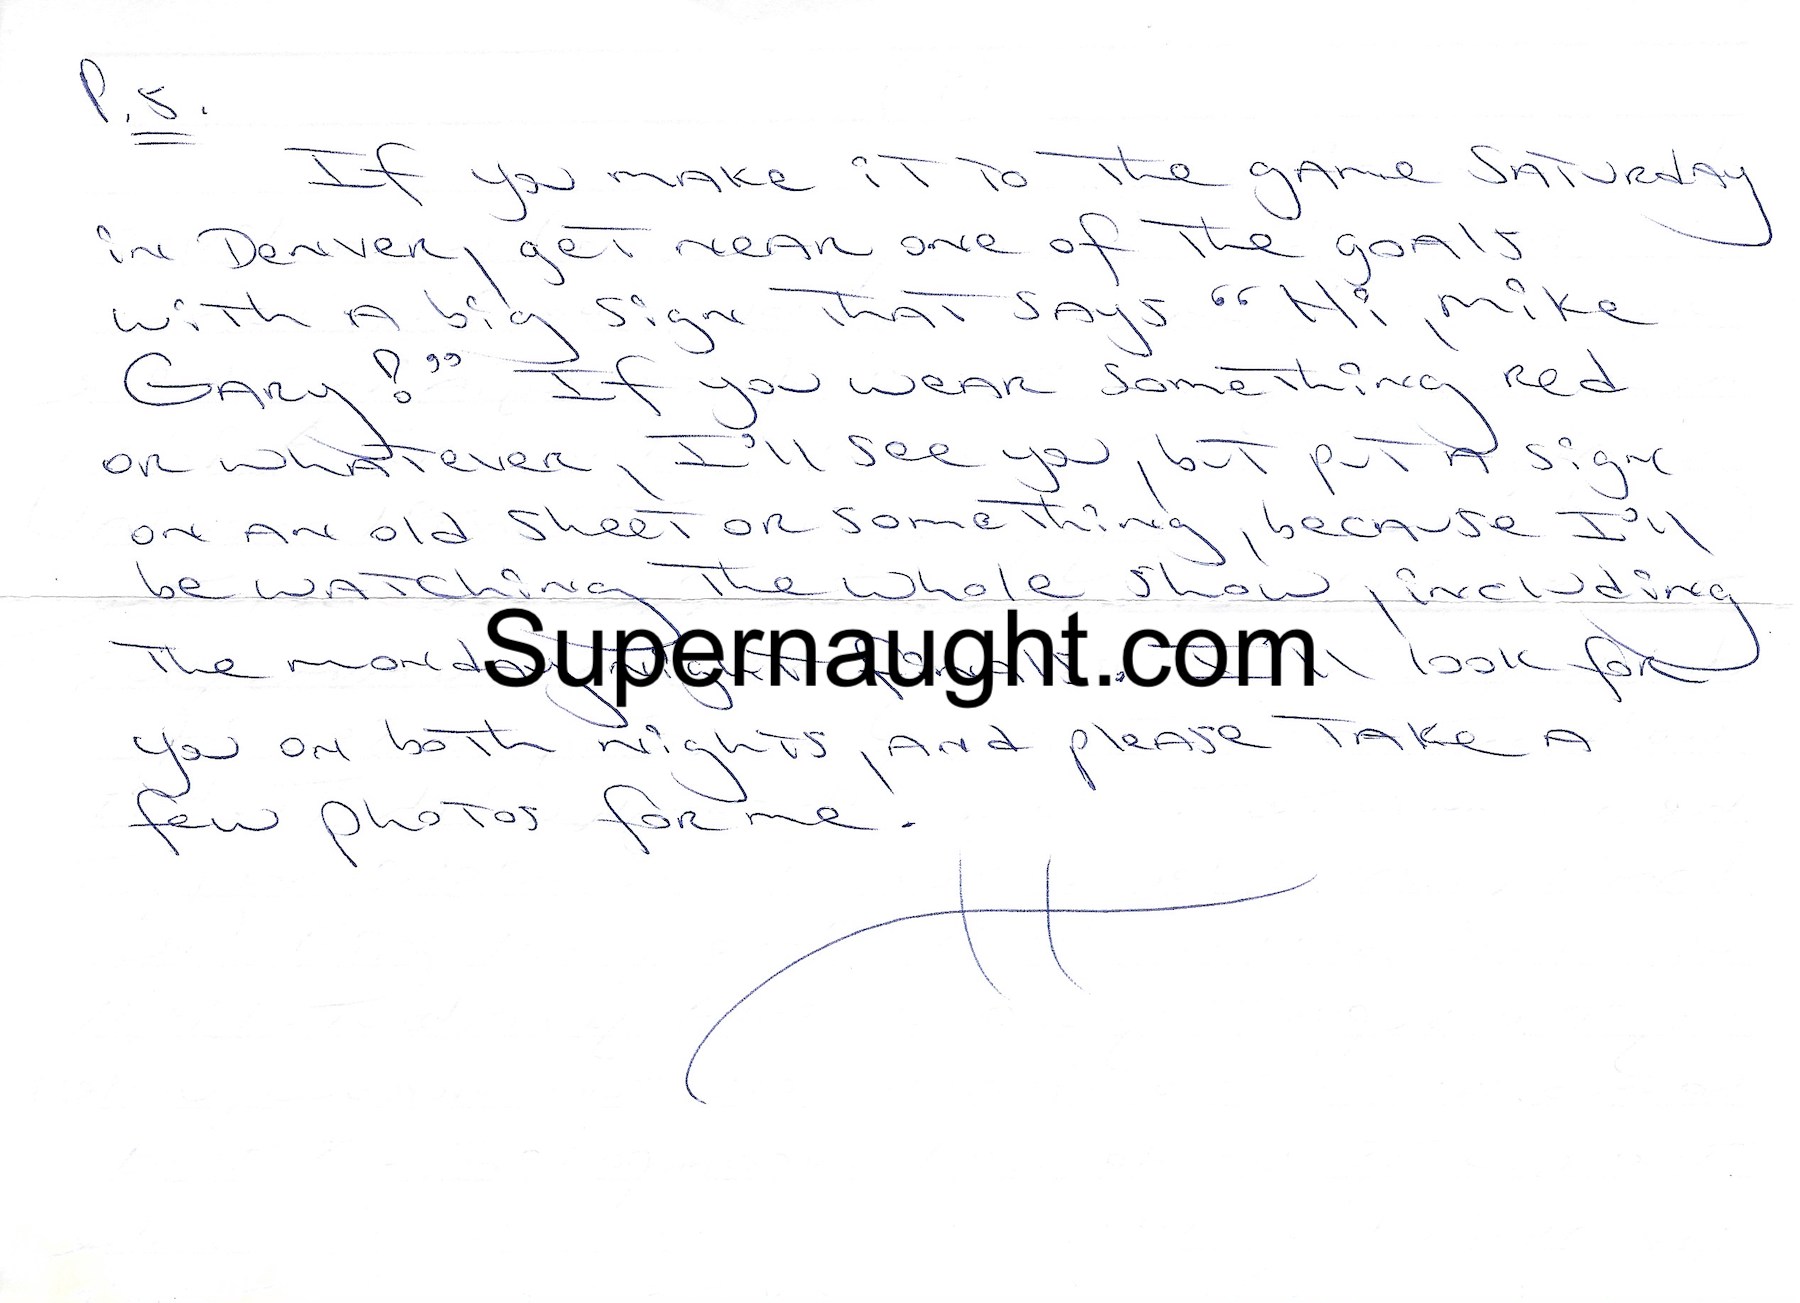 P.S.
If you make it to the game Saturday
in Denver, get near one of the goals
with a big sign that says "Hi, Mike
Gary!" If you wear something red
or whatever, I'll see you, but put a sign
on an old sheet or something, because I'll
be watching the whole show, including
the monday night finals. I'll look for
Supernaught.com
you on both nights, and please take a
few photos for me.